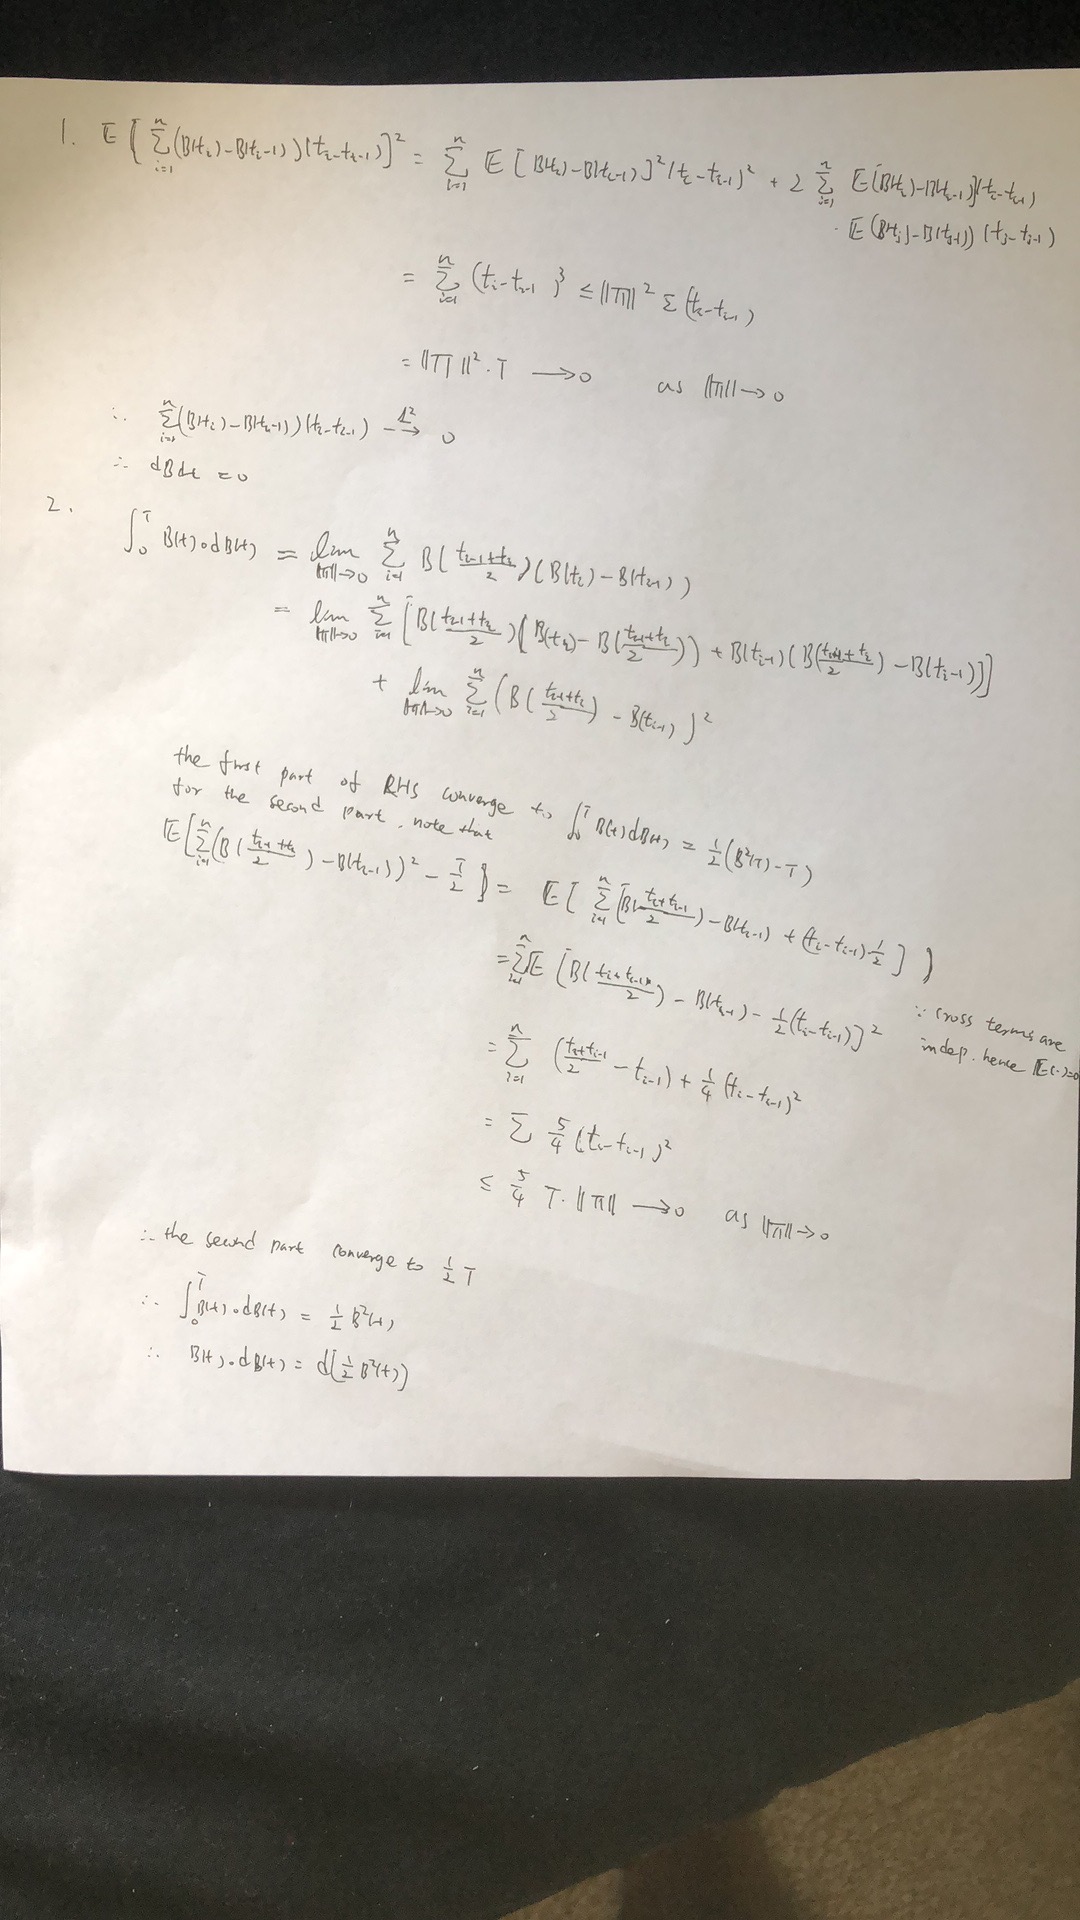 1. E[∑_{i=1}^{n}(B(t_i)-B(t_{i-1}))(t_i-t_{i-1})]² = ∑_{i=1}^{n} E[B(t_i)-B(t_{i-1})]²(t_i-t_{i-1})² + 2∑_{i=1}^{n} E(B(t_i)-B(t_{i-1}))(t_i-t_{i-1})
· E(B(t_j)-B(t_{j-1}))(t_j-t_{j-1})
= ∑_{i=1}^{n}(t_i-t_{i-1})³ ≤ ||Π||² Σ(t_i-t_{i-1})
= ||Π||²·T → 0 as ||Π||→0
∴ ∑_{i=1}^{n}(B(t_i)-B(t_{i-1}))(t_i-t_{i-1}) →^{L²} 0
∴ dBdt = 0
2.
∫_0^T B(t)∘dB(t) = lim_{||Π||→0} ∑_{i=1}^{n} B((t_{i-1}+t_i)/2)(B(t_i)-B(t_{i-1}))
= lim_{||Π||→0} ∑_{i=1}^{n}[B((t_{i-1}+t_i)/2)(B(t_i)-B((t_{i-1}+t_i)/2))+B(t_{i-1})(B((t_{i-1}+t_i)/2)-B(t_{i-1}))]
+ lim_{||Π||→0} ∑_{i=1}^{n}(B((t_{i-1}+t_i)/2)-B(t_{i-1}))²
the first part of RHS converge to ∫_0^T B(t)dB(t) = 1/2(B²(T)-T)
for the second part, note that
E[∑_{i=1}^{n}(B((t_{i-1}+t_i)/2)-B(t_{i-1}))²-T/2] = E[∑_{i=1}^{n}[B((t_i+t_{i-1})/2)-B(t_{i-1})+(t_i-t_{i-1})·1/2])
= ∑_{i=1}^{n}E[B((t_i+t_{i-1})/2)-B(t_{i-1})-1/2(t_i-t_{i-1})]² ∵ cross terms are
indep. hence E(·)=0
= ∑_{i=1}^{n} ((t_i+t_{i-1})/2-t_{i-1})+1/4(t_i-t_{i-1})²
= Σ 5/4(t_i-t_{i-1})²
≤ 5/4 T·||Π|| → 0 as ||Π||→0
∴ the second part converge to 1/2 T
∴ ∫_0^T B(t)∘dB(t) = 1/2 B²(t)
∴ B(t)∘dB(t) = d[1/2 B²(t)]